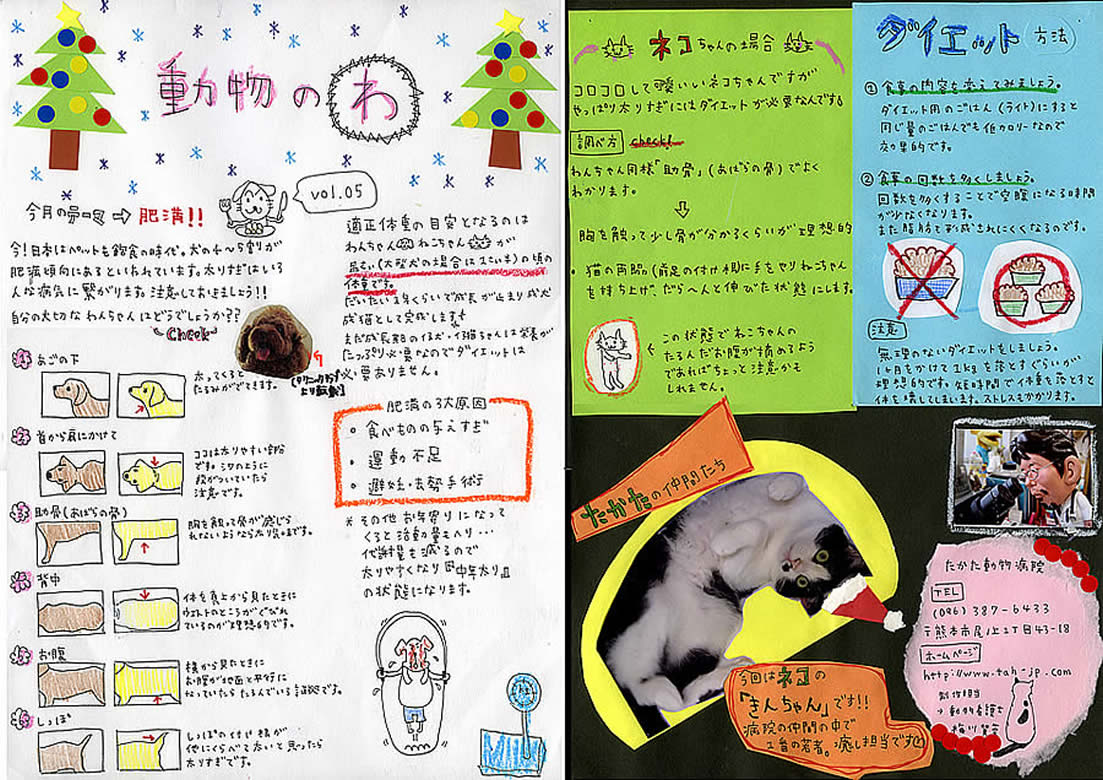 動物のわ
vol.05
今月の一口⇒肥満!!
今!日本はペットも飽食の時代。犬の4〜5割が
肥満傾向にあるといわれています。太りすぎはいろ
んな病気に繋がります。注意しておきましょう!!
自分の大切なわんちゃんはどうでしょうか??
Check
あごの下
太ってくると
たるみがでてきます。
首から肩にかけて
ココは太りやすい部分
です。シワのように
段がついていたら
注意です。
助骨(あばらの骨)
胸を触って骨が感じら
れないようなら太り気味です。
背中
体を真上から見たときに
ウエストのところがくびれ
ているのが理想的です。
お腹
横から見たときに
お腹が地面と平行に
なっていたらたるんでいる証拠です。
しっぽ
しっぽの付け根が
他にくらべて太いと思ったら
太りすぎです。
適正体重の目安となるのは
わんちゃん ねこちゃん が
1歳(大型犬の場合は2さい半)の頃の
体重です。
だいたいこれくらいで成長が止まり成犬
成猫として完成します
まだ成長期の仔犬・仔猫ちゃんは栄養が
たっぷり必要なのでダイエットは
必要ありません。
肥満の3大原因
食べものの与えすぎ
運動不足
避妊・去勢手術
* その他お年寄りになって
くると活動量もヘり…
代謝量も減るので
太りやすくなり『中年太り』
の状態になります。
ネコちゃんの場合
コロコロして可愛いいネコちゃんですが
やっぱり太りすぎにはダイエットが必要なんです。
調べ方 check!
わんちゃん同様「助骨」(あばらの骨)でよく
わかります。
⇩
胸を触って少し骨が分かるくらいが理想的
・猫の両脇(前足の付け根)に手をやりねこちゃん
を持ち上げ、だら〜んと伸びた状態にします。
この状態でねこちゃんの
たるんだお腹が摘めるよう
であればちょっと注意かも
しれません。
ダイエット方法
① 食事の内容を変えてみましょう。
ダイエット用のごはん(ライト)にすると
同じ量のごはんでも低カロリーなので
効果的です。
② 食事の回数を多くしましょう。
回数を多くすることで空腹になる時間
が少なくなります。
また脂肪も形成されにくくなるのです。
注意
無理のないダイエットをしましょう。
1ヶ月をかけて1kgを落とすぐらいが
理想的です。短時間で体重を落とすと
体を壊してしまいます。ストレスもかかります。
たかたの仲間たち
今回はネコの
「きんちゃん」です!!
病院の仲間の中で
1番の若者。癒し担当です
たかた動物病院
TEL
(096)387-6433
〒熊本市尾ノ上2丁目43-18
ホームページ
http://www.tah-jp.com
製作担当
→動物看護士